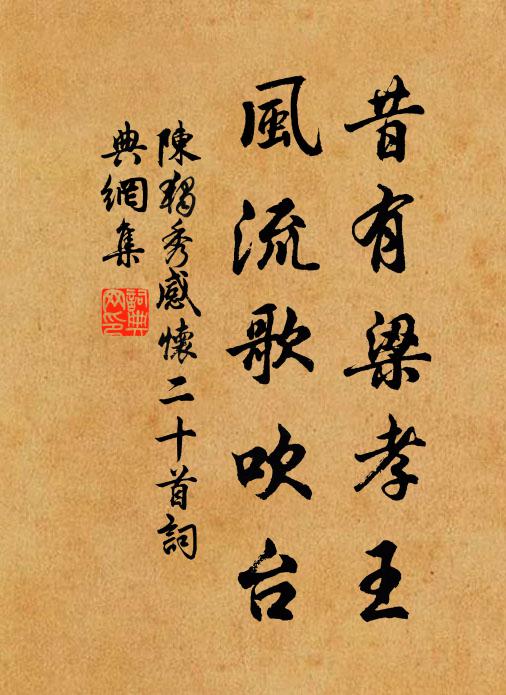 昔有梁孝王
風流歌吹台
陳獨秀感懷二十首詞
典網集
詞典
网印